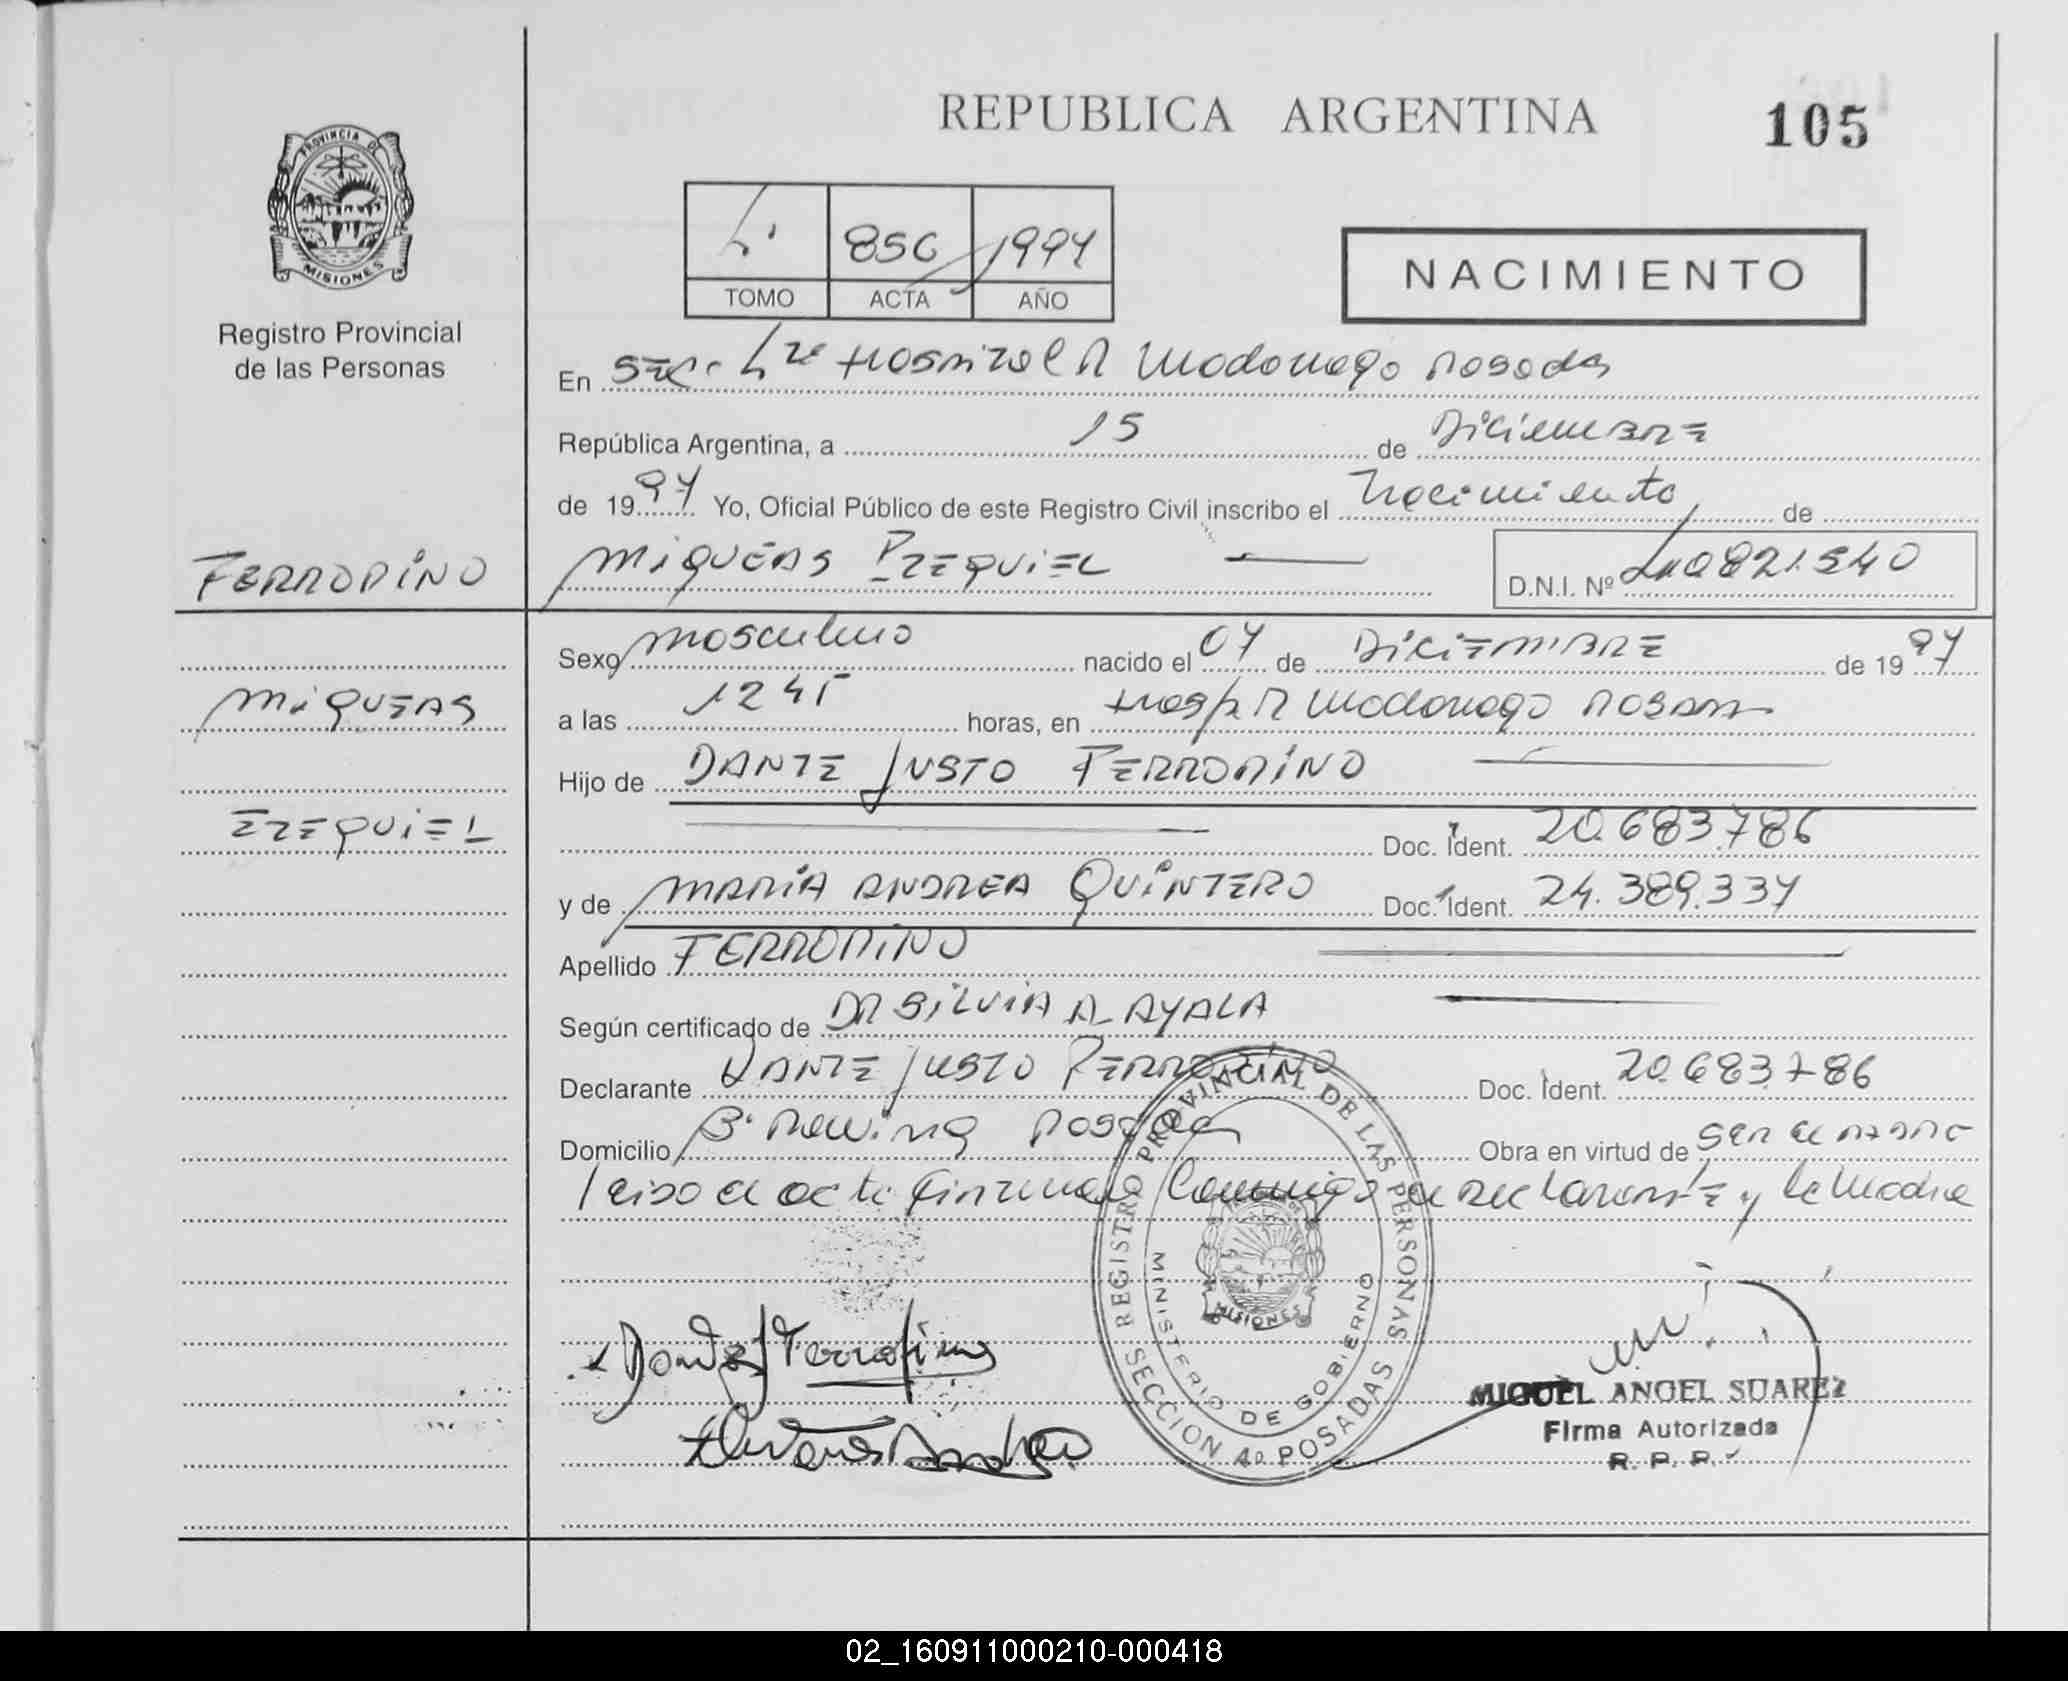 REPUBLICA ARGENTINA
105
PROVINCIA DE
MISIONES
Registro Provincial
de las Personas
856 1997
TOMO ACTA AÑO
NACIMIENTO
En Sec. Hospital R Madariaga Posadas
República Argentina, a 15 de Diciembre
de 1997 Yo, Oficial Público de este Registro Civil inscribo el Nacimiento de
FERROPINO
MIQUEAS EZEQUIEL D.N.I. Nº 40821.540
Sexo masculino nacido el 07 de DICIEMBRE de 1997
MIQUEAS
a las 1245 horas, en Hosp R Madariaga Posadas
Hijo de DANTE JUSTO FERROPINO
EZEQUIEL
Doc. Ident. 20.683.786
y de MARIA ANDREA QUINTERO Doc. Ident. 24.389.337
Apellido FERROPINO
Según certificado de DR SILVIA A. AYALA
Declarante DANTE JUSTO FERROPINO Doc. Ident. 20.683.786
Domicilio Posadas Obra en virtud de ser el padre
leiso el acta firman conmigo el declarante y la madre
REGISTRO PROVINCIAL DE LAS PERSONAS
MINISTERIO DE GOBIERNO
MISIONES
SECCION 4º POSADAS
MIGUEL ANGEL SUAREZ
Firma Autorizada
R. P. P.
02_160911000210-000418